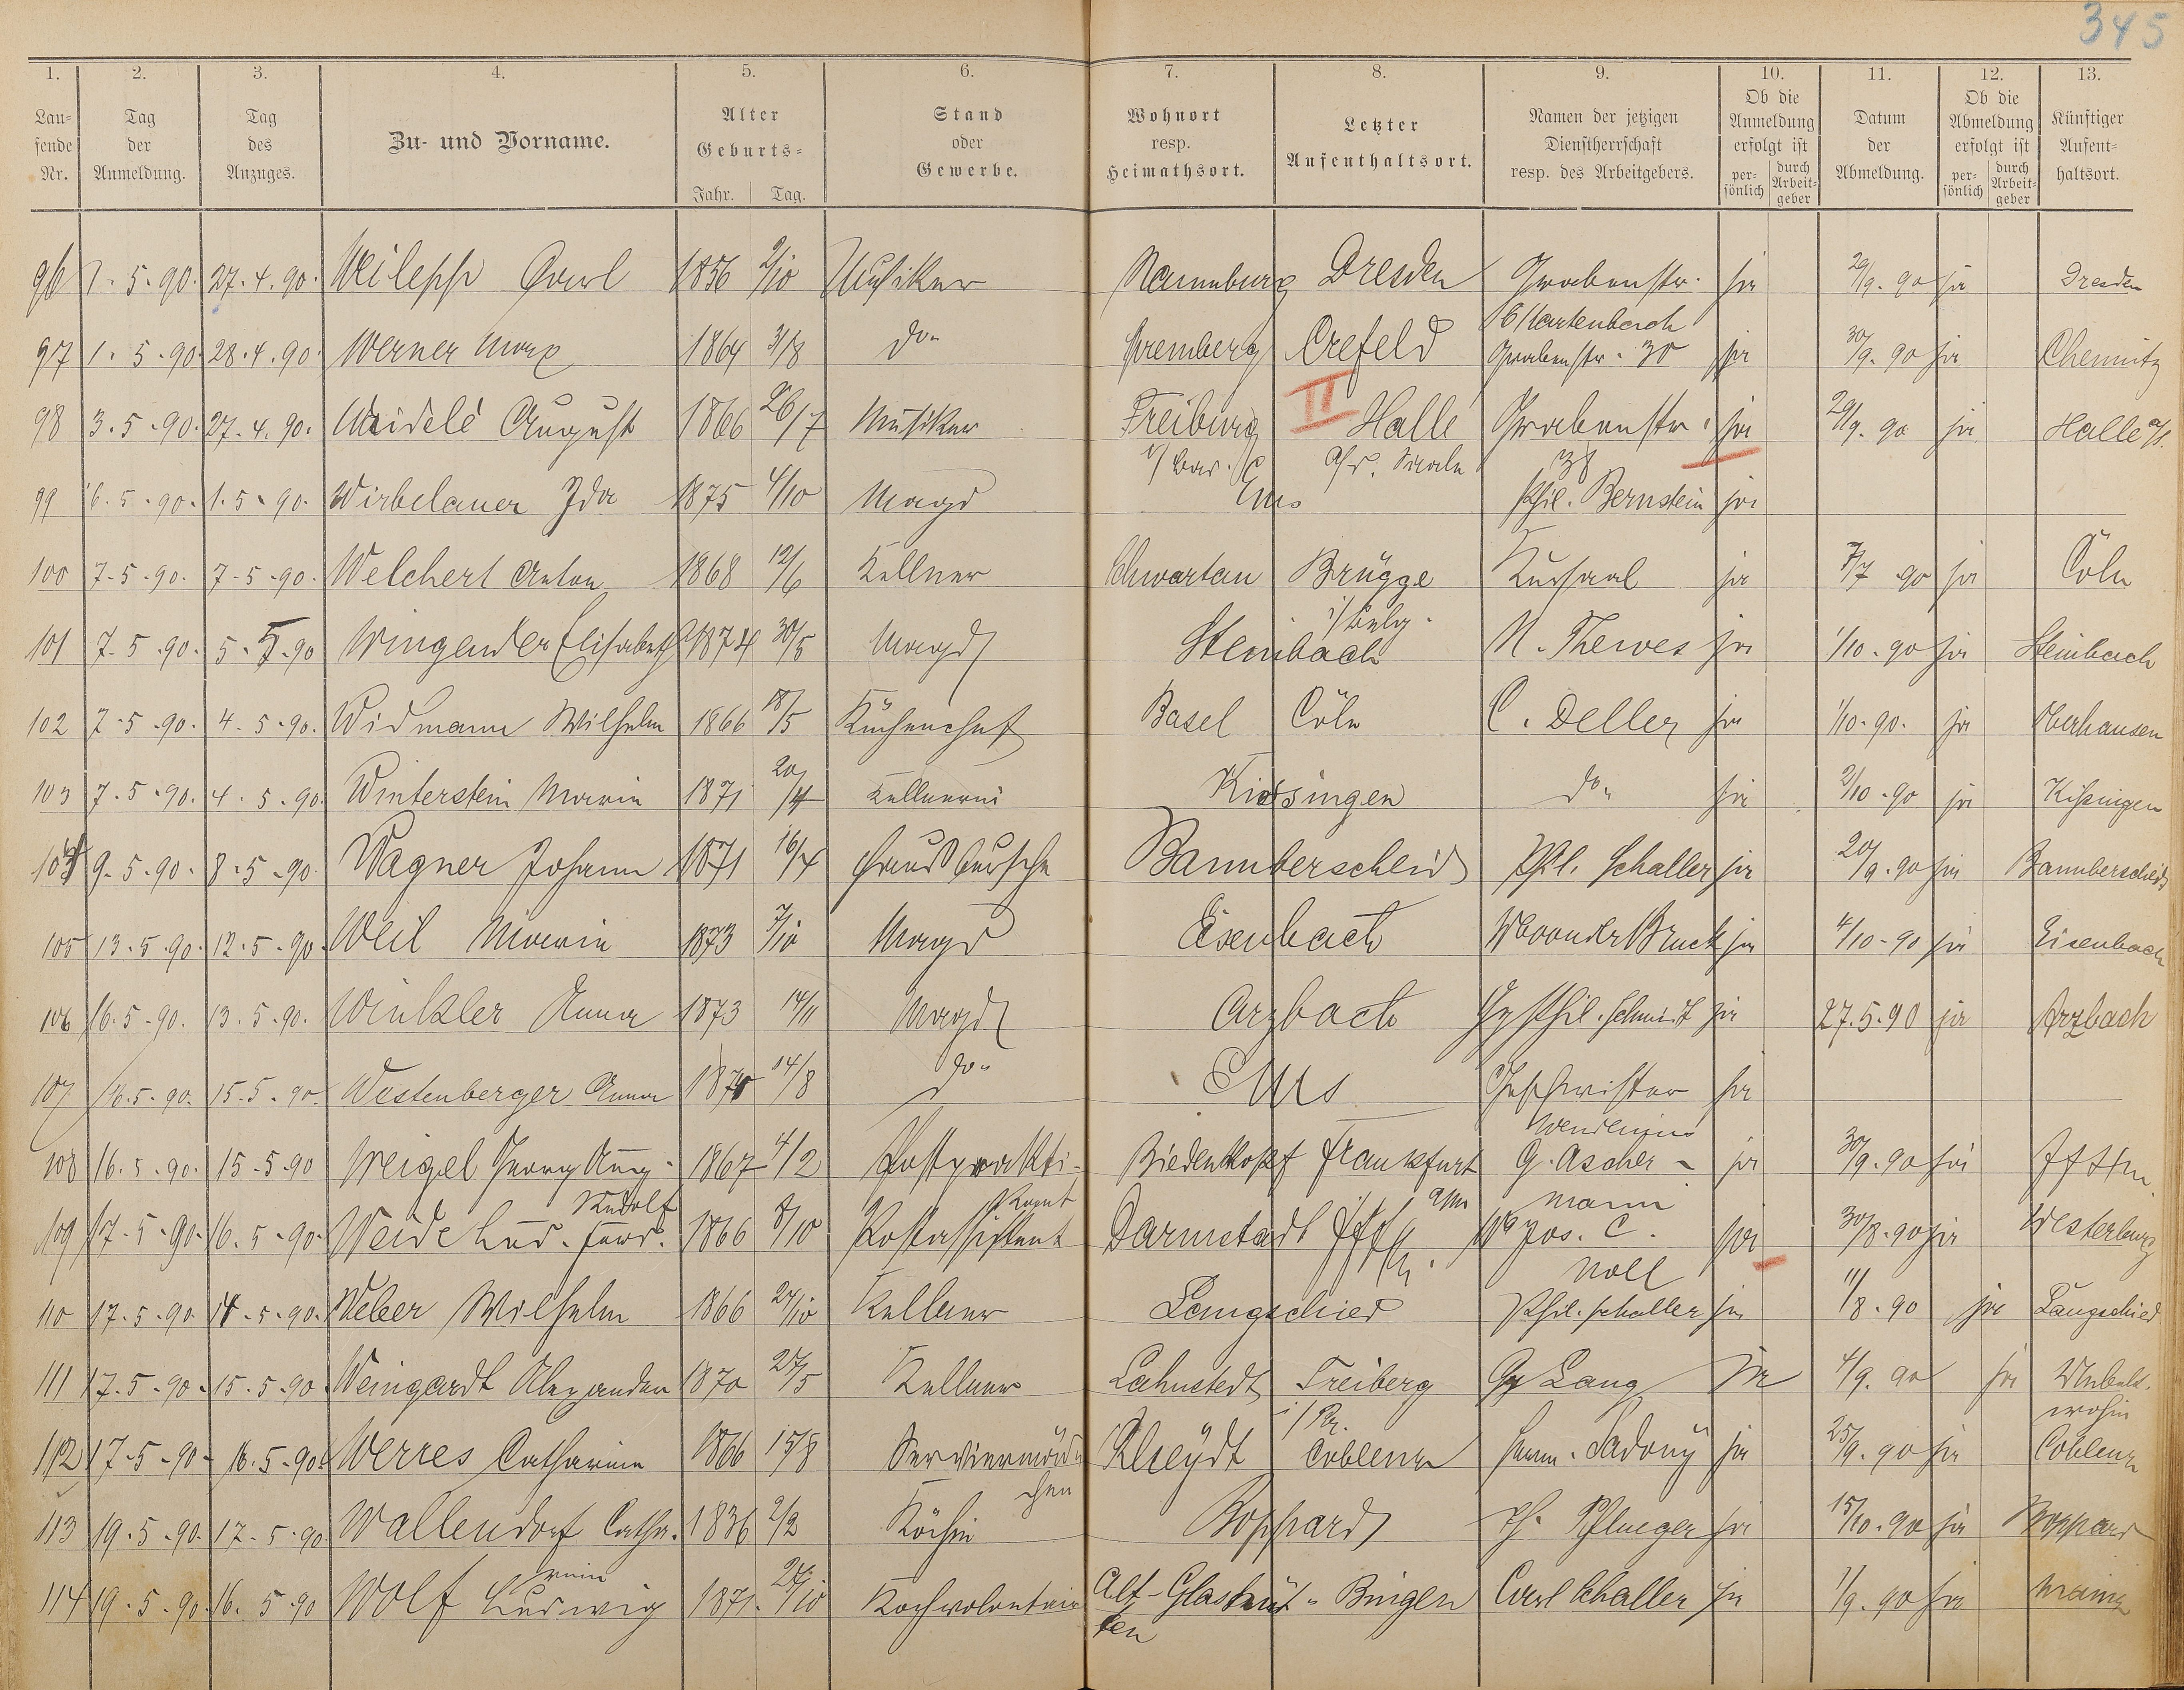 345
1. 2. 3. 4. 5. 6. 7. 8. 9. 10. 11. 12. 13.
Laufende Nr. Tag der Anmeldung. Tag des Anzuges. Zu- und Vorname. Alter Geburts- Jahr. Tag. Stand oder Gewerbe. Wohnort resp. Heimathsort. Letzter Aufenthaltsort. Namen der jetzigen Dienstherrschaft resp. des Arbeitgebers. Ob die Anmeldung erfolgt ist persönlich durch Arbeitgeber Datum der Abmeldung. Ob die Abmeldung erfolgt ist persönlich durch Arbeitgeber Künftiger Aufenthaltsort.
96 1. 5. 90. 27. 4. 90. Weilepp Carl 1856 2/10 Musiker Naumburg Dresden Grabenstr. ja 29/9. 90 ja Dresden
97 1. 5. 90. 28. 4. 90. Werner Max 1864 3/8 do. Spremberg Crefeld Grabenstr. 30 ja 30/9. 90 ja Chemnitz
98 3. 5. 90. 27. 4. 90. Weidele August 1866 26/7 Musiker Freiburg II Halle Grabenstr. ja 29/9. 90 ja Halle a/S.
i/ Bad. a/d. Saale 38
99 6. 5. 90. 1. 5. 90. Wirbelauer Ida 1875 4/10 Magd Ems Phil. Bernstein ja
100 7. 5. 90. 7. 5. 90. Welchert Anton 1868 12/6 Kellner Schwartau Brügge Kursaal ja 7/7 90 ja Cöln
i/ Belg.
101 7. 5. 90. 5. 5. 90 Wingender Elisabeth 1874 30/5 Magd Steinbach N. Thewes ja 1/10. 90 ja Steinbach
102 7. 5. 90. 4. 5. 90. Widmann Wilhelm 1866 18/5 Küchenchef Basel Cöln C. Deller ja 1/10. 90. ja Oberhausen
103 7. 5. 90. 4. 5. 90. Winterstein Maria 1871 20/4 Kellnerin Kissingen do. ja 2/10. 90 ja Kissingen
104 9. 5. 90. 8. 5. 90. Wagner Johann 1871 16/4 Hausbursche Bannberscheid Phl. Schaller ja 20/9. 90 ja Bannberscheid
105 13. 5. 90. 12. 5. 90. Weil Maria 1873 7/10 Magd Eisenbach W vonder Bruck ja 4/10. 90 ja Eisenbach
106 16. 5. 90. 13. 5. 90. Winkler Anna 1873 14/11 Magd Arzbach Phil. Schmidt ja 27. 5. 90 ja Arzbach
107 16. 5. 90. 15. 5. 90. Westenberger Anna 14/8 do. Ems Geschwister ja
108 16. 5. 90. 15. 5. 90 Weigel Georg Aug. 1867 4/2 Postprakti- Biedenkopf Frankfurt G. Ascher- ja 30/9. 90 ja
Rudolf kant a/m mann
109 17. 5. 90. 16. 5. 90. Weide Lud. Ferd. 1866 8/10 Postassistent Darmstadt Jos. C. ja 30/8. 90 ja Westerburg
Noll
110 17. 5. 90. 14. 5. 90. Weber Wilhelm 1866 Kellner Langschied Phil. Schaller ja 11/8. 90 ja Langschied
111 17. 5. 90. 15. 5. 90. Weingardt Alexander 1870 27/5 Kellner Lahnstedt Freiberg Lang ja 4/9. 90 ja Unbek.
wohin
112 17. 5. 90. 16. 5. 90. Werres Catharina 1866 15/8 Serviermäd- Rheydt Coblenz Herm. Sadony ja 25/9. 90 ja Coblenz
chen
113 19. 5. 90. 17. 5. 90. Wallendorf Catha- 1836 2/2 Köchin Boppard Ph. Pflueger ja 15/10. 90 ja Boppard
rina
114 19. 5. 90. 16. 5. 90 Wolf Ludwig 1871. Kochvolontair Alt-Glashüt- Bingen Carl Schaller ja 1/9. 90 ja Mainz
ten